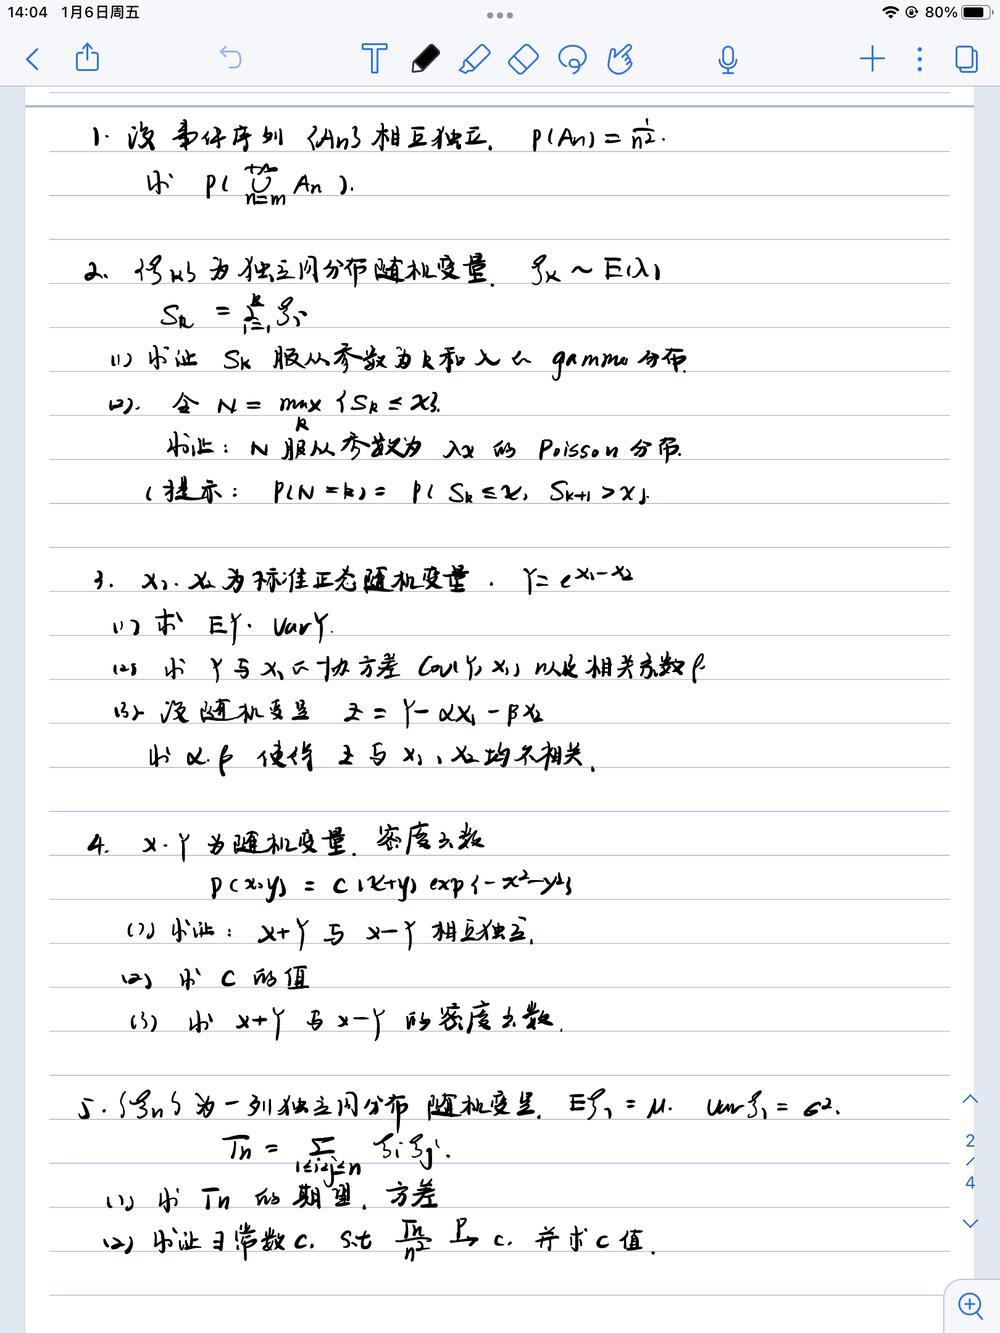 14:04 1月6日周五 80%
1. 设事件序列 {An} 相互独立. P(An) = 1/n².
求 P( ⋃_{n=m}^{+∞} An ).
2. {ξk} 为独立同分布随机变量. ξk ~ E(λ)
Sk = Σ_{i=1}^{k} ξi
(1) 求证 Sk 服从参数为 k 和 λ の gamma 分布.
(2). 令 N = max_k {Sk ≤ x}.
求证: N 服从参数为 λx 的 Poisson 分布.
(提示: P(N=k) = P( Sk ≤ x, Sk+1 > x).
3. X1. X2 为标准正态随机变量. Y = e^{X1-X2}
(1) 求 EY. VarY.
(2) 求 Y 与 X1 の协方差 Cov(Y, X1) 以及相关系数 ρ
(3) 设随机变量 Z = Y - αX1 - βX2
求 α.β 使得 Z 与 X1、X2 均不相关.
4. X.Y 为随机变量. 密度函数
P(x,y) = C(x+y) exp{-x²-y²}
(1) 求证: X+Y 与 X-Y 相互独立.
(2) 求 C 的值
(3) 求 X+Y 与 X-Y 的密度函数.
5. {ξn} 为一列独立同分布随机变量. Eξ1 = μ. Varξ1 = σ².
Tn = Σ_{1≤i<j≤n} ξiξj.
(1) 求 Tn 的期望. 方差
(2) 求证 ∃ 常数 c. s.t Tn/n² →^P c. 并求 c 值.
2
/
4